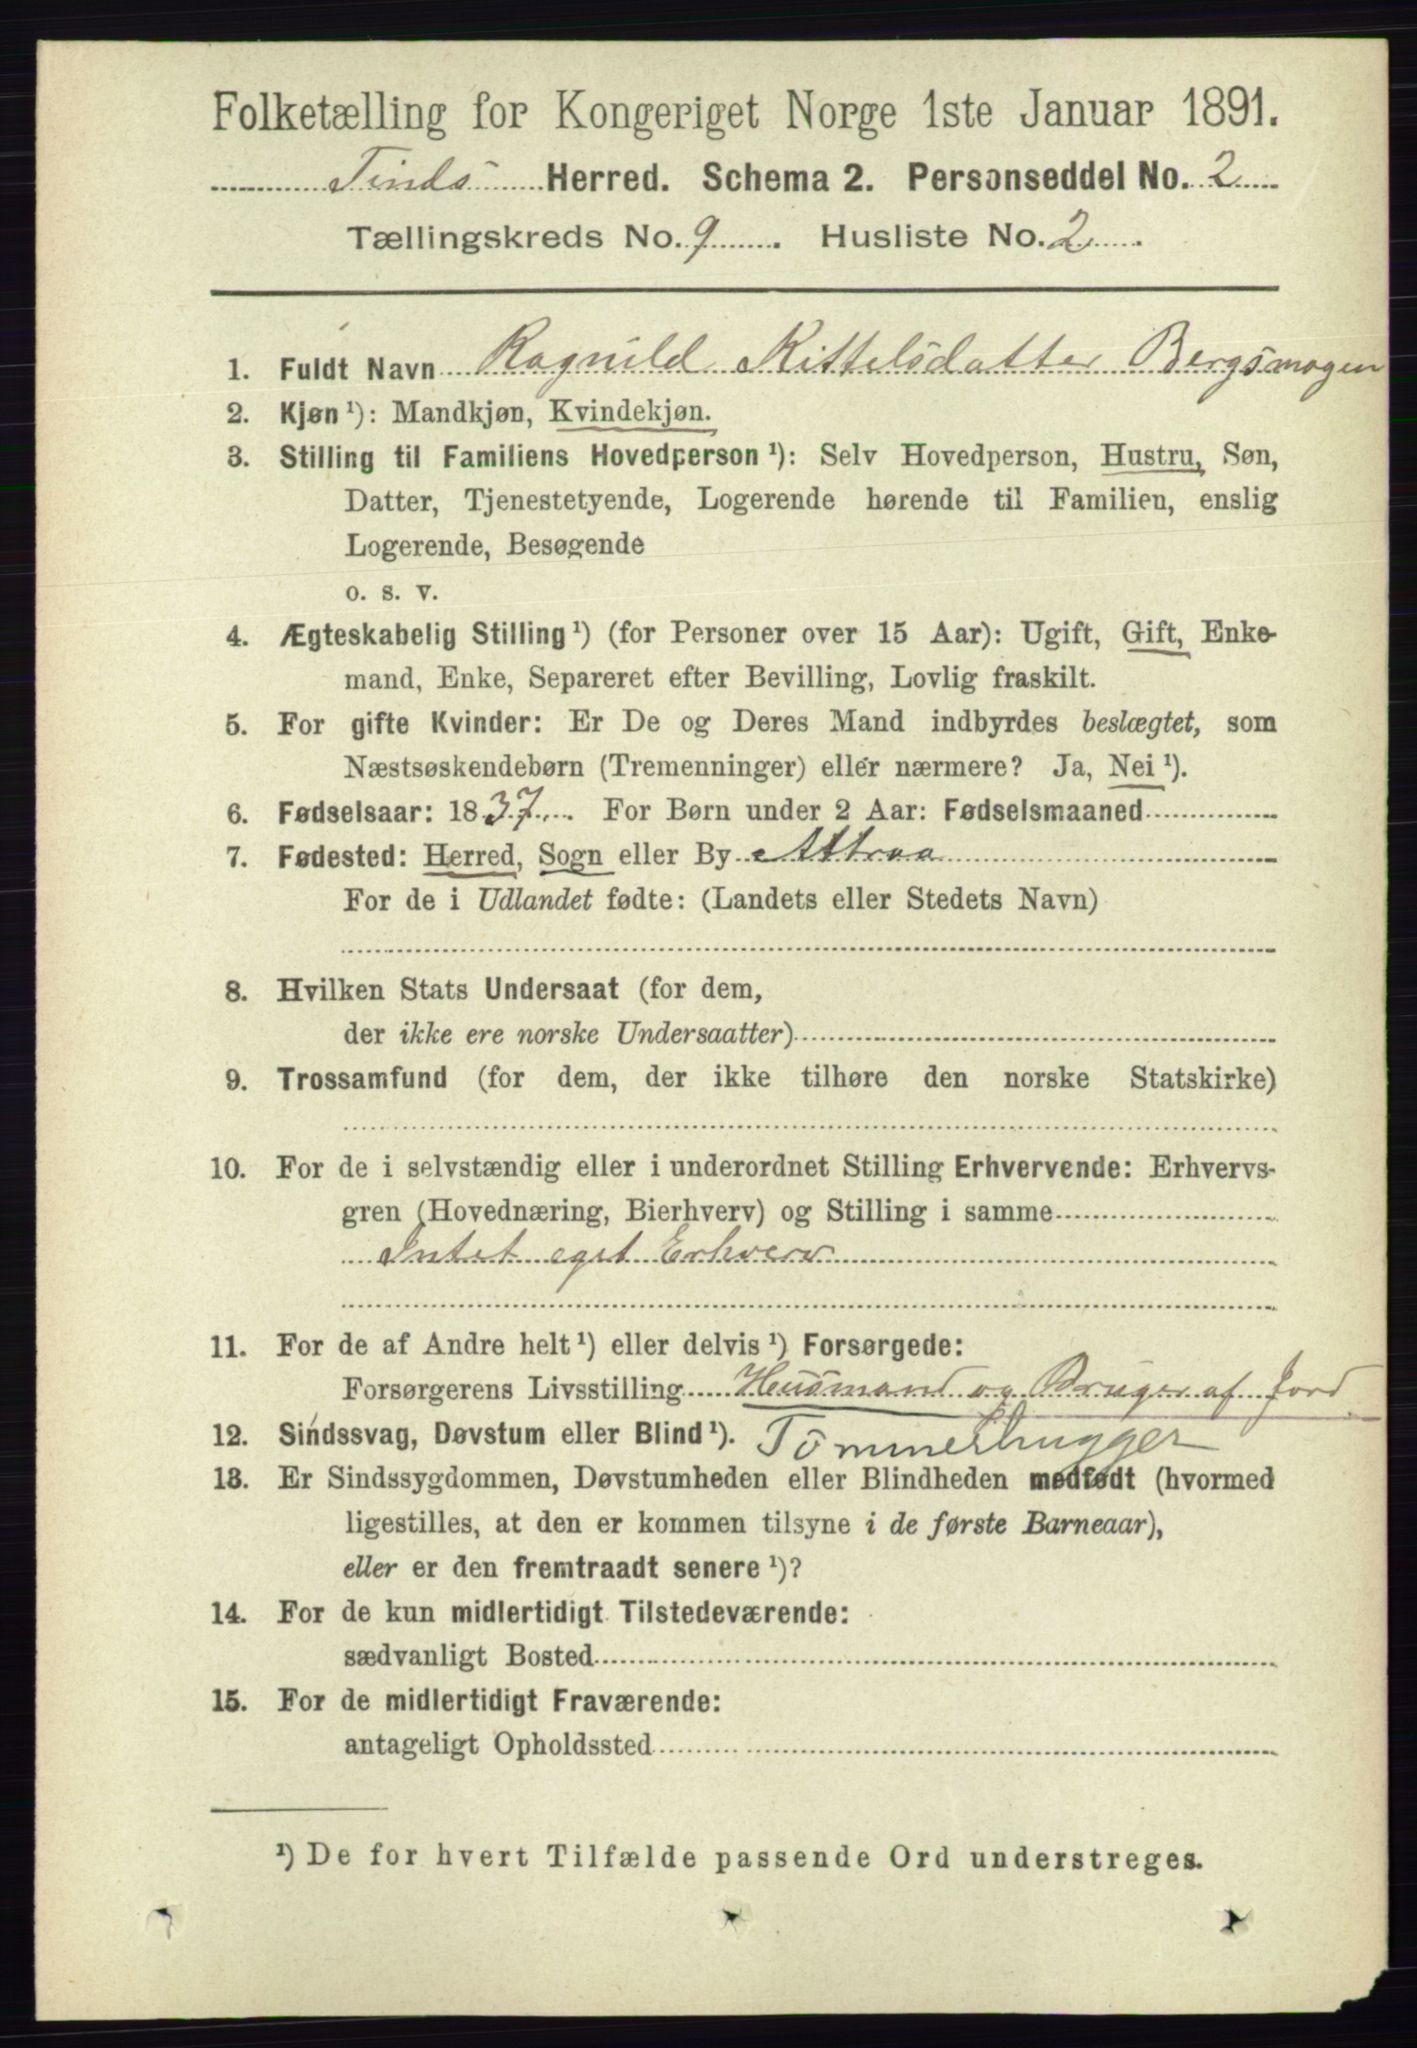 Folketælling for Kongeriget Norge 1ste Januar 1891.
Tinds Herred. Schema 2. Personseddel No. 2
Tællingskreds No. 9. Husliste No. 2.
1. Fuldt Navn Ragnild Kittelsdatter Bergsmogen
2. Kjøn ¹): Mandkjøn, Kvindekjøn.
3. Stilling til Familiens Hovedperson ¹): Selv Hovedperson, Hustru, Søn,
Datter, Tjenestetyende, Logerende hørende til Familien, enslig
Logerende, Besøgende
o. s. v.
4. Ægteskabelig Stilling ¹) (for Personer over 15 Aar): Ugift, Gift, Enke-
mand, Enke, Separeret efter Bevilling, Lovlig fraskilt.
5. For gifte Kvinder: Er De og Deres Mand indbyrdes beslægtet, som
Næstsøskendebørn (Tremenninger) eller nærmere? Ja, Nei ¹).
6. Fødselsaar: 1837. For Børn under 2 Aar: Fødselsmaaned
7. Fødested: Herred, Sogn eller By Attraa
For de i Udlandet fødte: (Landets eller Stedets Navn)
8. Hvilken Stats Undersaat (for dem,
der ikke ere norske Undersaatter)
9. Trossamfund (for dem, der ikke tilhøre den norske Statskirke)
10. For de i selvstændig eller i underordnet Stilling Erhvervende: Erhvervs-
gren (Hovednæring, Bierhverv) og Stilling i samme
Intet eget Erhverv
11. For de af Andre helt ¹) eller delvis ¹) Forsørgede:
Forsørgerens Livsstilling Husmand og Bruger af Jord
12. Sindssvag, Døvstum eller Blind ¹). Tømmerhugger
13. Er Sindssygdommen, Døvstumheden eller Blindheden medfødt (hvormed
ligestilles, at den er kommen tilsyne i de første Barneaar),
eller er den fremtraadt senere ¹)?
14. For de kun midlertidigt Tilstedeværende:
sædvanligt Bosted
15. For de midlertidigt Fraværende:
antageligt Opholdssted
¹) De for hvert Tilfælde passende Ord understreges.